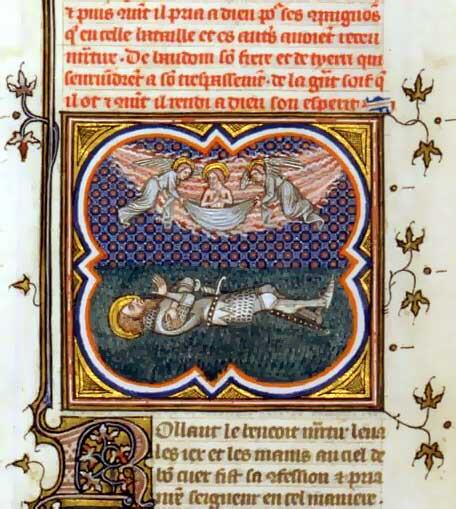 ⁊ puis ꝯmt il pria a dieu poꝰ ses ꝯpaignōs
q̄ en celle bataille et es autʼs auoiēt receu
martire. De baudoin sō frere et de tyerri qui
seruindrēt a sō trespassement. de la grāt soif q̄
il ot ⁊ ꝯmt il rendi a dieu son esperit
Rollant le benoit martir leua
les iex et les mains au ciel de
bō cuer fist sa ꝯfession ⁊ pria
nr̄e seigneur en cel maniere.